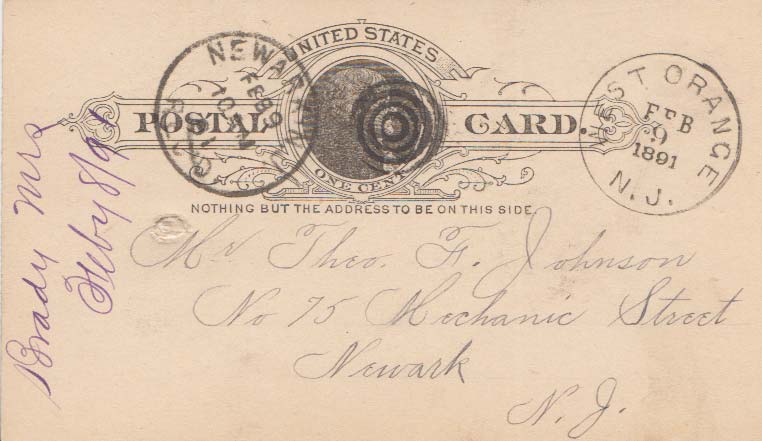 UNITED STATES
POSTAL CARD.
ONE CENT
NOTHING BUT THE ADDRESS TO BE ON THIS SIDE
NEWARK N.J.
FEB 9
10 AM
91
REC'D
WEST ORANGE
FEB
9
1891
N.J.
Mr Theo. F. Johnson
No 75 Mechanic Street
Newark
N. J.
Brady Mrs
Feby 8/91